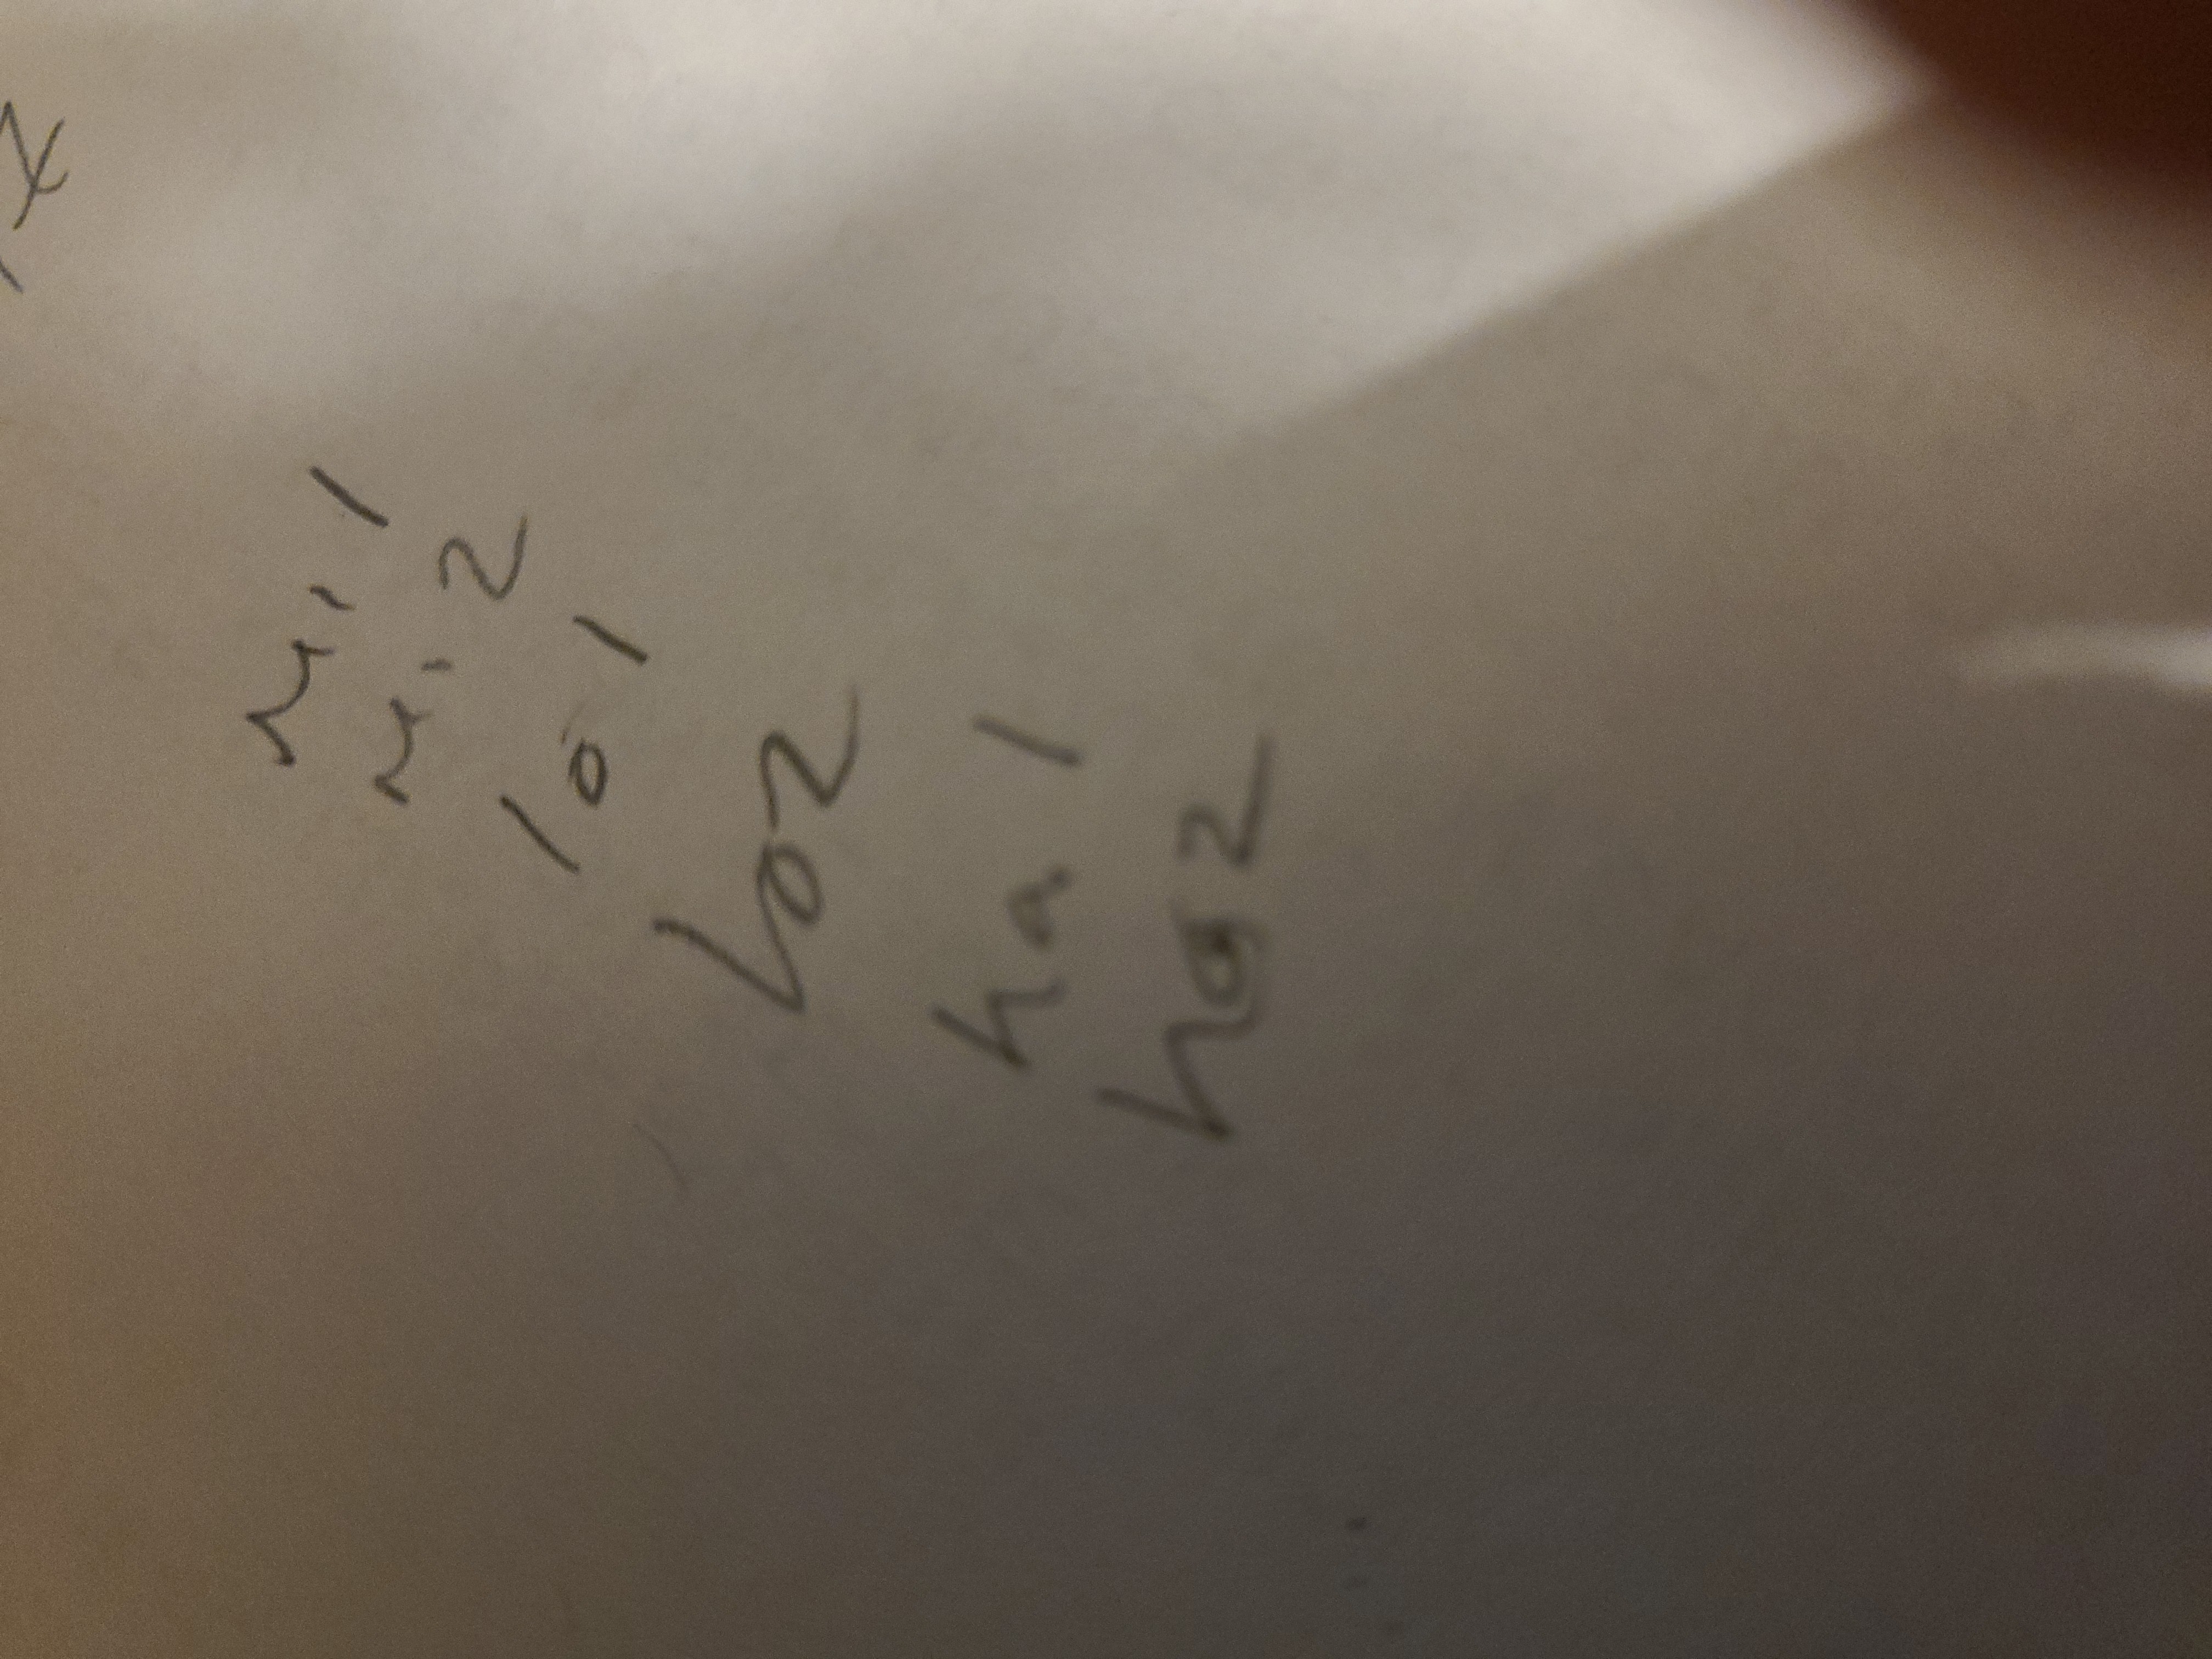 mi 1
mi 2
lo 1
lo2
ha 1
ha2